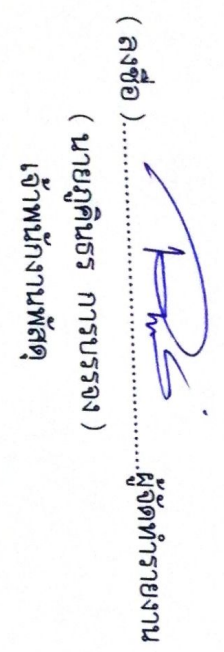 ( ลงชื่อ )......................................................ผู้จัดทำรายงาน
( นายภูคินธร การบรรจง )
เจ้าพนักงานพัสดุ